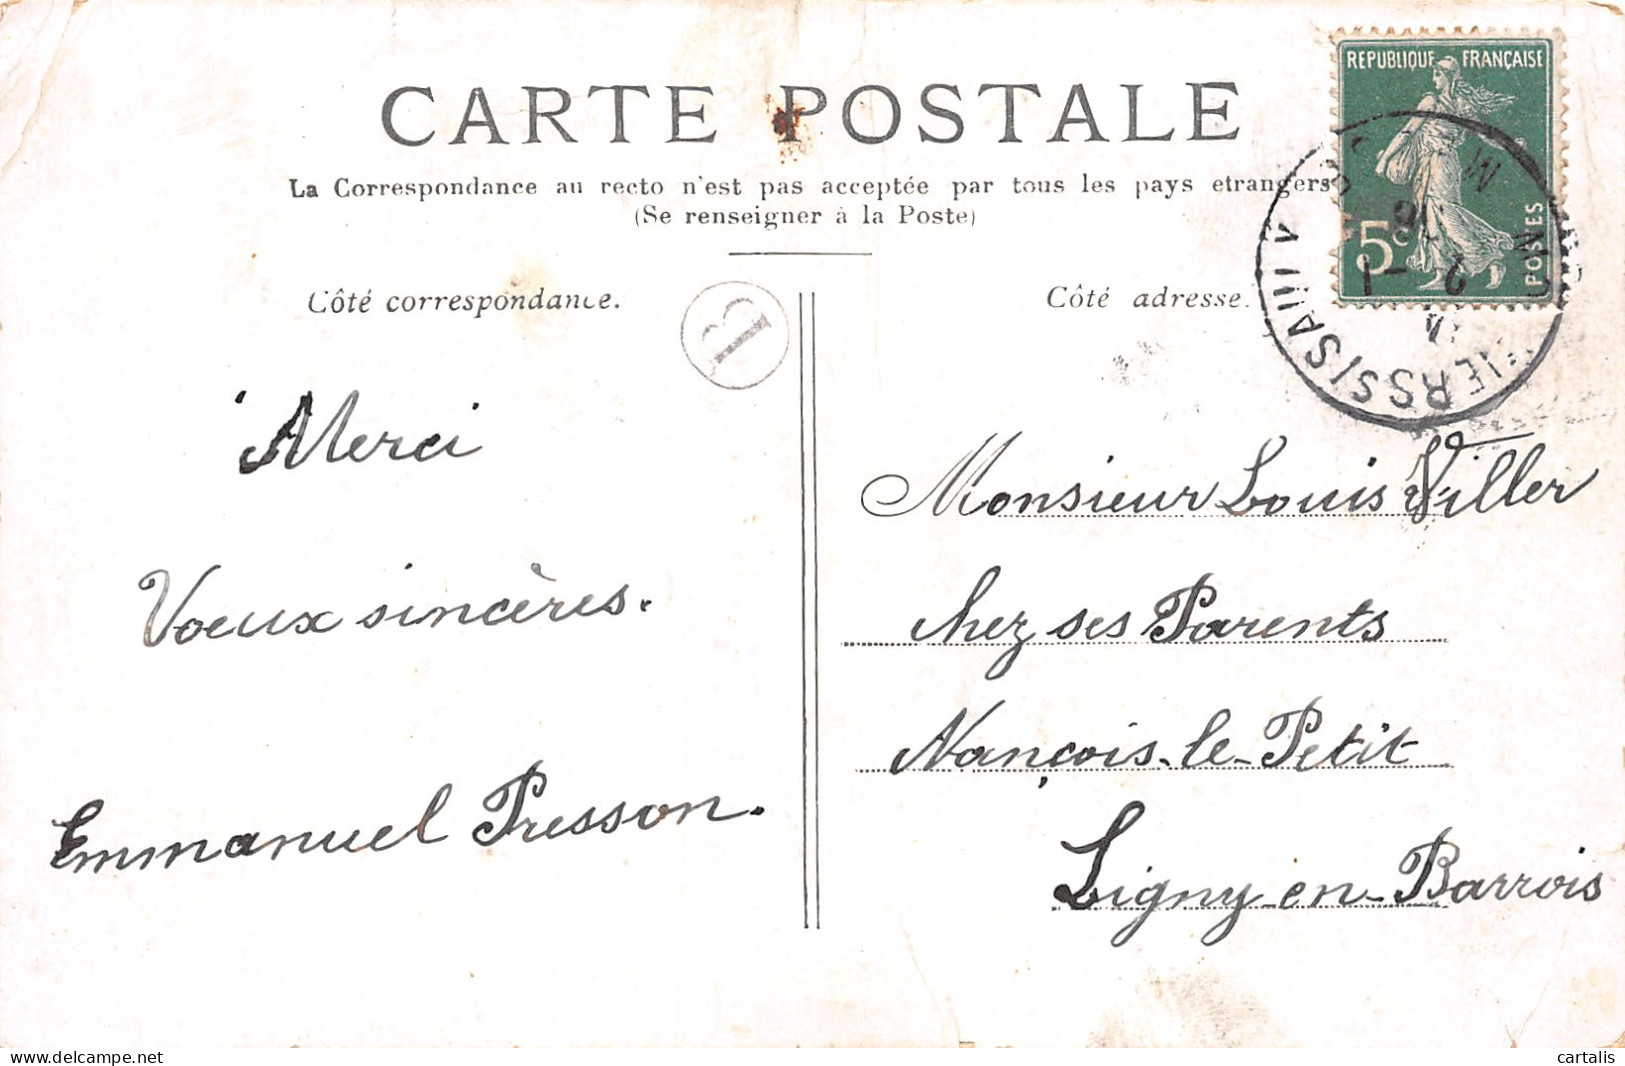 CARTE POSTALE
La Correspondance au recto n'est pas acceptée par tous les pays etrangers
(Se renseigner à la Poste)
Côté correspondance.
Côté adresse.
REPUBLIQUE FRANÇAISE
5c
POSTES
B
Merci
Voeux sincères.
Emmanuel Presson.
Monsieur Louis Viller
chez ses Parents
Nançois-le-Petit
Ligny-en-Barrois
delcampe.net
cartalis